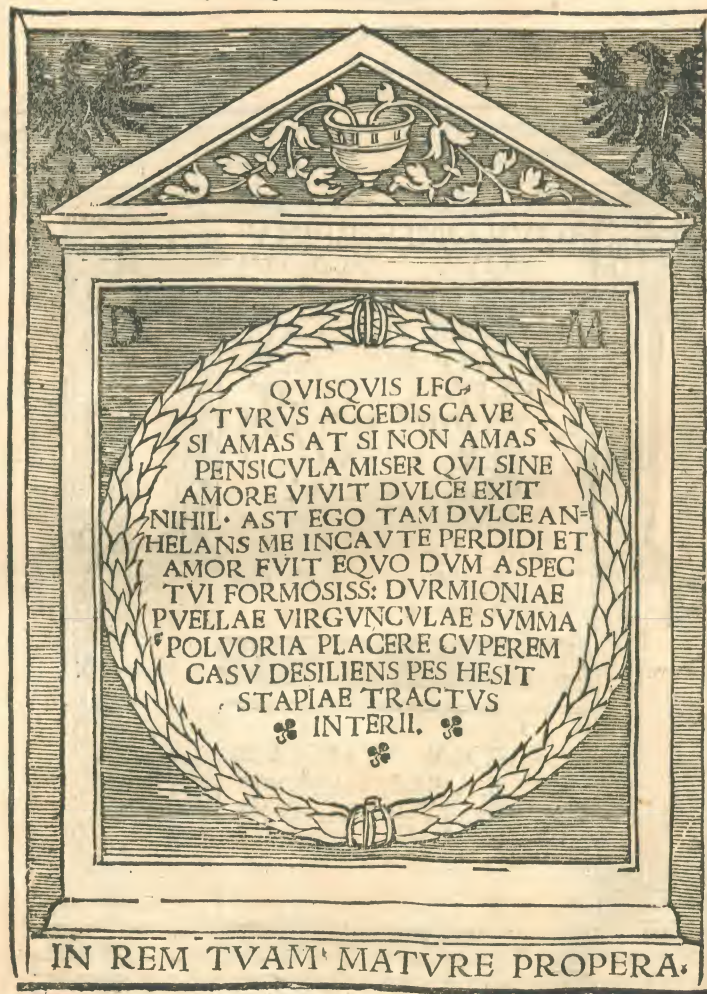 D M
QVISQVIS LFC,
TVRVS ACCEDIS CAVE
SI AMAS AT SI NON AMAS
PENSICVLA MISER QVI SINE
AMORE VIVIT DVLCE EXIT
NIHIL· AST EGO TAM DVLCE AN=
HELANS ME INCAVTE PERDIDI ET
AMOR FVIT EQVO DVM ASPEC
TVI FORMOSISS: DVRMIONIAE
PVELLAE VIRGVNCVLAE SVMMA
POLVORIA PLACERE CVPEREM
CASV DESILIENS PES HESIT
STAPIAE TRACTVS
INTERII.
IN REM TVAM MATVRE PROPERA.